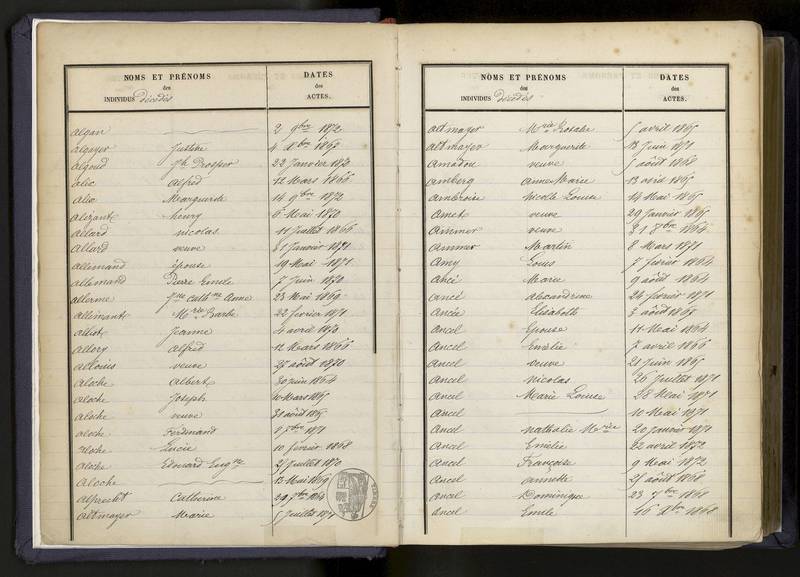 NOMS ET PRÉNOMS
des
INDIVIDUS Décédés
DATES
des
ACTES.
algan 2 9bre 1872
algayer Justine 4 Xbre 1869
algoud Jh Prosper 22 Janvier 1870
alic alfred 12 Mars 1866
alic Marguerite 14 9bre 1872
henry 6 Mai 1870
allard nicolas 11 Juillet 1866
allard veuve 31 Janvier 1871
allemand épouse 19 Mai 1871
allemand Pierre Emile 7 Juin 1870
allerme Jne Cathne Anne 23 Mai 1869
allemant Mrie Barbe 22 février 1871
alliot Jeanne 4 avril 1870
allory alfred 12 Mars 1866
alloius veuve 27 août 1870
aloche albert 30 juin 1864
aloche Joseph 10 Mars 1865
aloche veuve 31 août 1865
aloche Ferdinand 1871
aloche Lucie 10 février 1868
aloche Edouard Eugne 21 Juillet 1870
aloche 12 Mai 1869
alprecht Catherine 29 7bre 1864
altmayer Marie 5 Juillet 1871
NOMS ET PRÉNOMS
des
INDIVIDUS Décédés
DATES
des
ACTES.
altmayer Mrie Rosalie 5 avril 1865
altmayer Marguerite 13 Juin 1871
amadru veuve 5 août 1868
amberg Anne Marie 13 avril 1865
ambroise Nicolle Louise 14 Mai 1865
amet veuve 29 Janvier 1865
ammer veuve 21 7bre 1864
ammer Martin 8 Mars 1871
amy Louis 7 février 1864
Marie 9 août 1864
ancé alexandrine 24 février 1871
ancée Elisabeth 3 août 1865
ancel Epouse 11 Mai 1864
ancel Emélie 7 avril 1866
ancel veuve 21 juin 1865
ancel nicolas 26 Juillet 1871
ancel Marie Louise 28 Mai 1871
ancel 10 Mai 1871
ancel nathalie Mrie 20 Janvier 1871
ancel Emélie 22 avril 1872
ancel Françoise 9 Mai 1872
ancel annette 25 août 1868
ancel Dominique 23 7bre 1868
ancel Emile 16 Xbre 1868